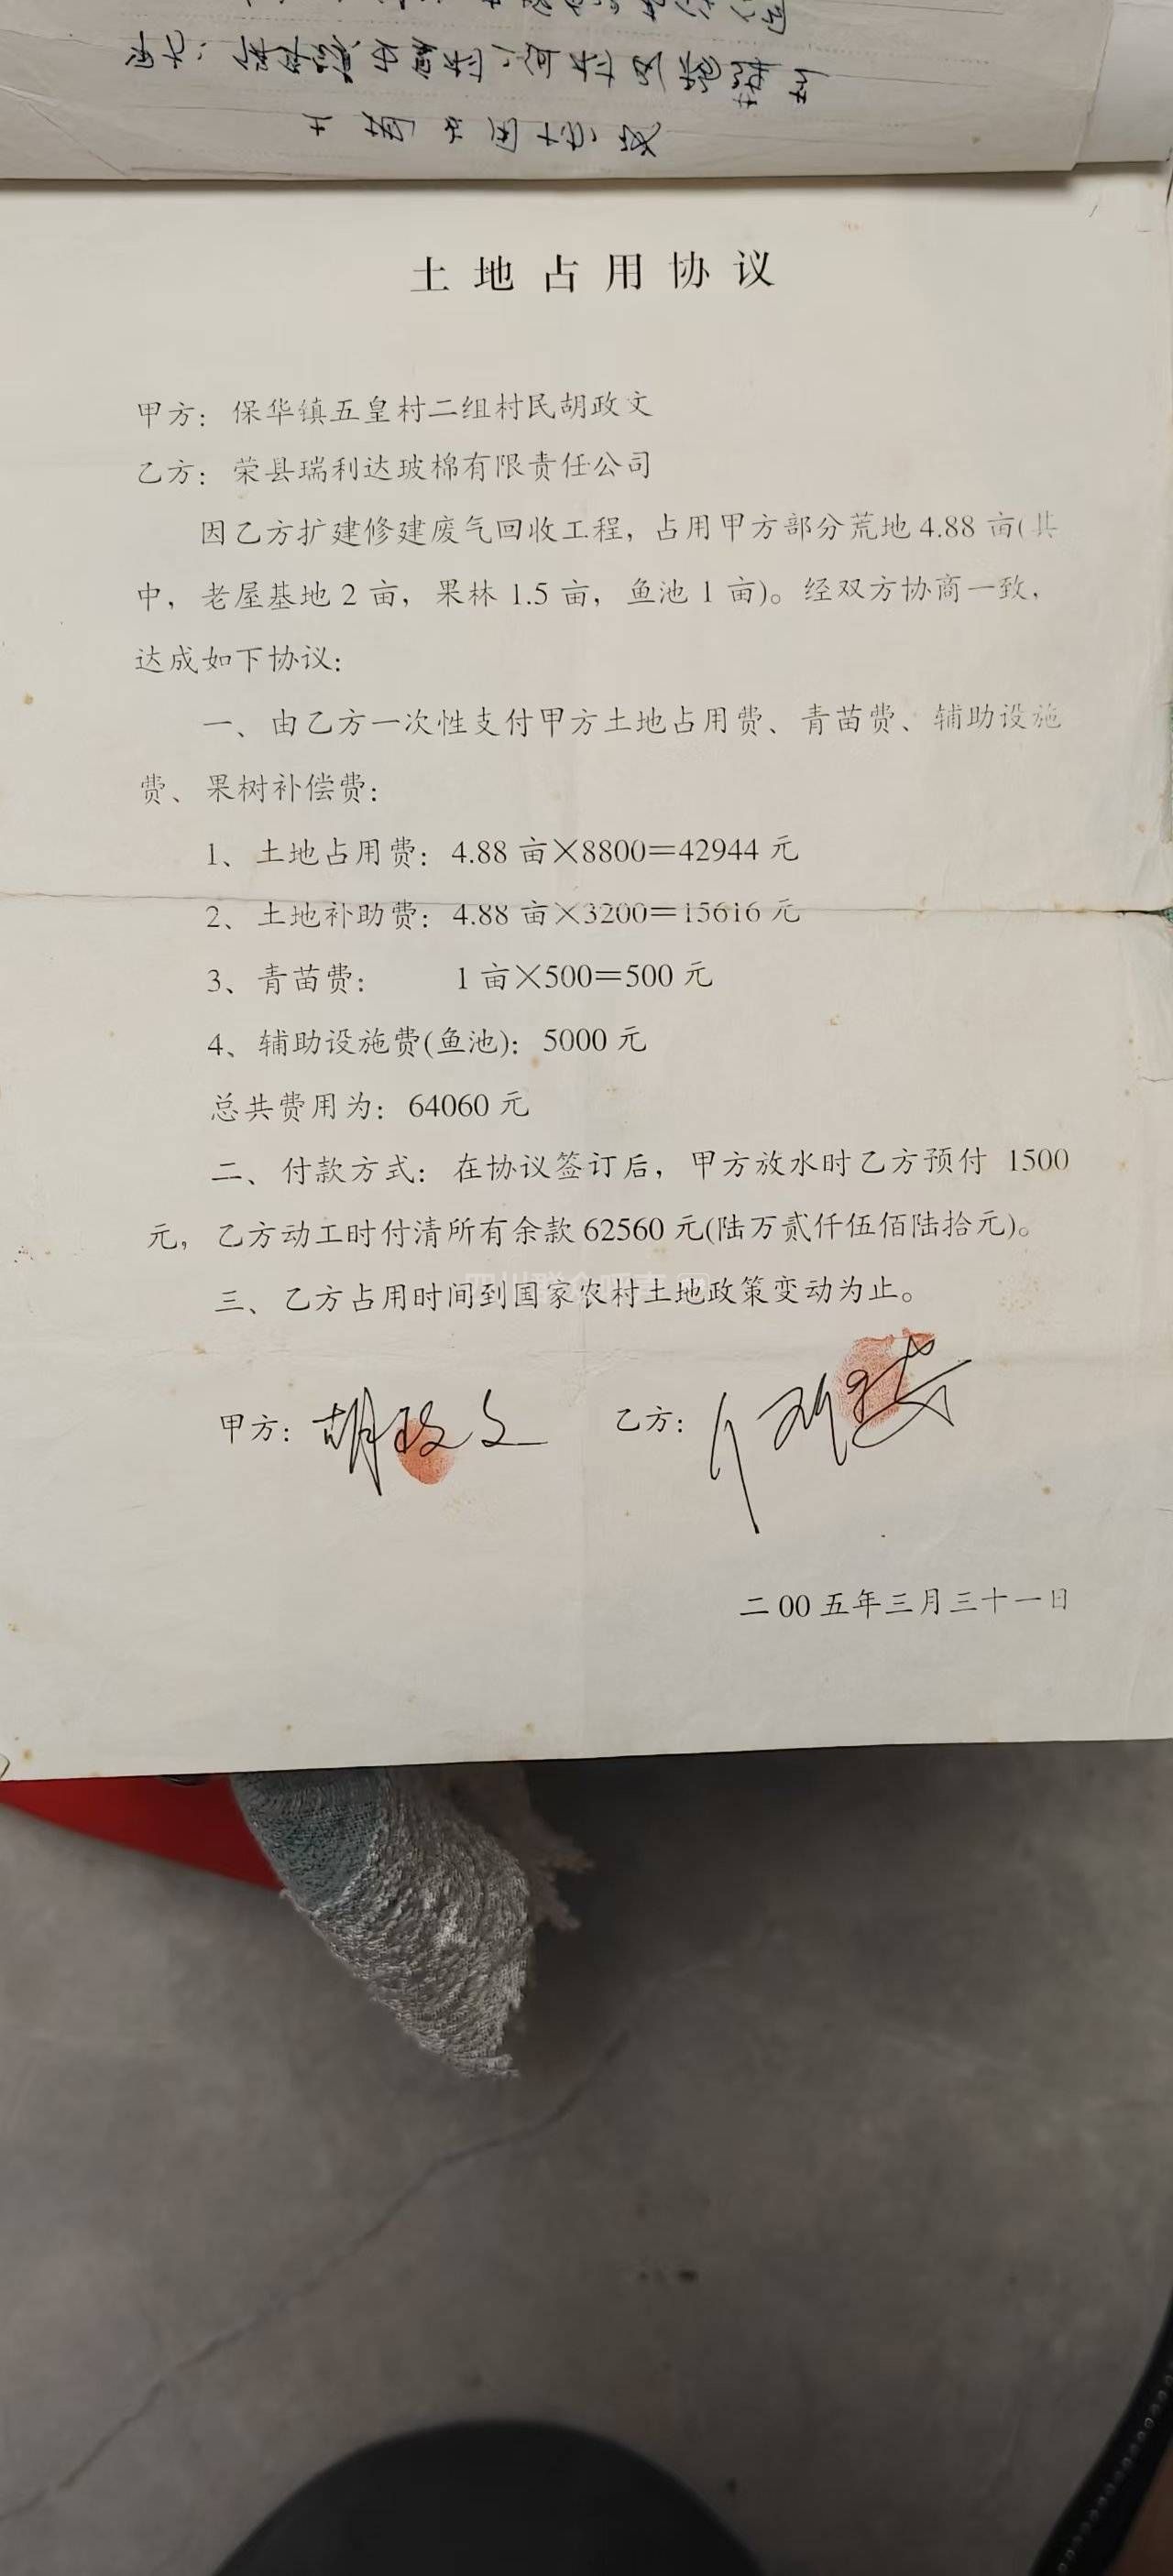 土地占用协议
甲方：保华镇五皇村二组村民胡政文
乙方：荣县瑞利达玻棉有限责任公司
因乙方扩建修建废气回收工程，占用甲方部分荒地4.88亩(其
中，老屋基地2亩，果林1.5亩，鱼池1亩)。经双方协商一致，
达成如下协议：
一、由乙方一次性支付甲方土地占用费、青苗费、辅助设施
费、果树补偿费：
1、土地占用费：4.88亩×8800=42944元
2、土地补助费：4.88亩×3200=15616元
3、青苗费： 1亩×500=500元
4、辅助设施费(鱼池)：5000元
总共费用为：64060元
二、付款方式：在协议签订后，甲方放水时乙方预付 1500
元，乙方动工时付清所有余款62560元(陆万贰仟伍佰陆拾元)。
三、乙方占用时间到国家农村土地政策变动为止。
甲方：胡政文 乙方：
二00五年三月三十一日